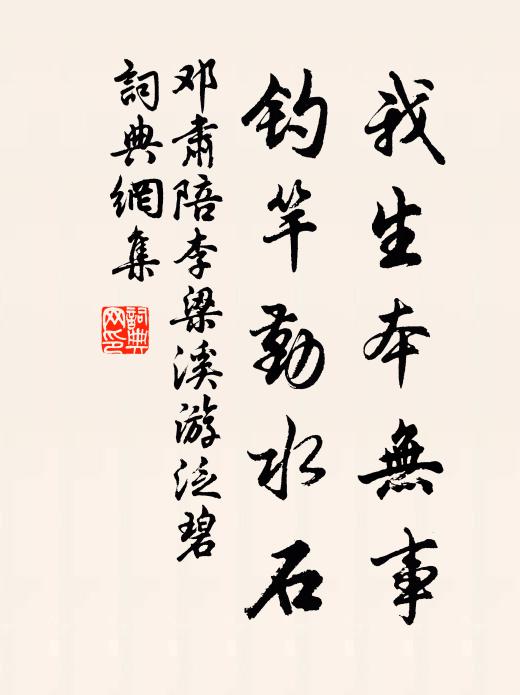 我生本無事
釣竿勤水石
邓肅陪李梁溪游泛碧
詞典網集
詞典网印